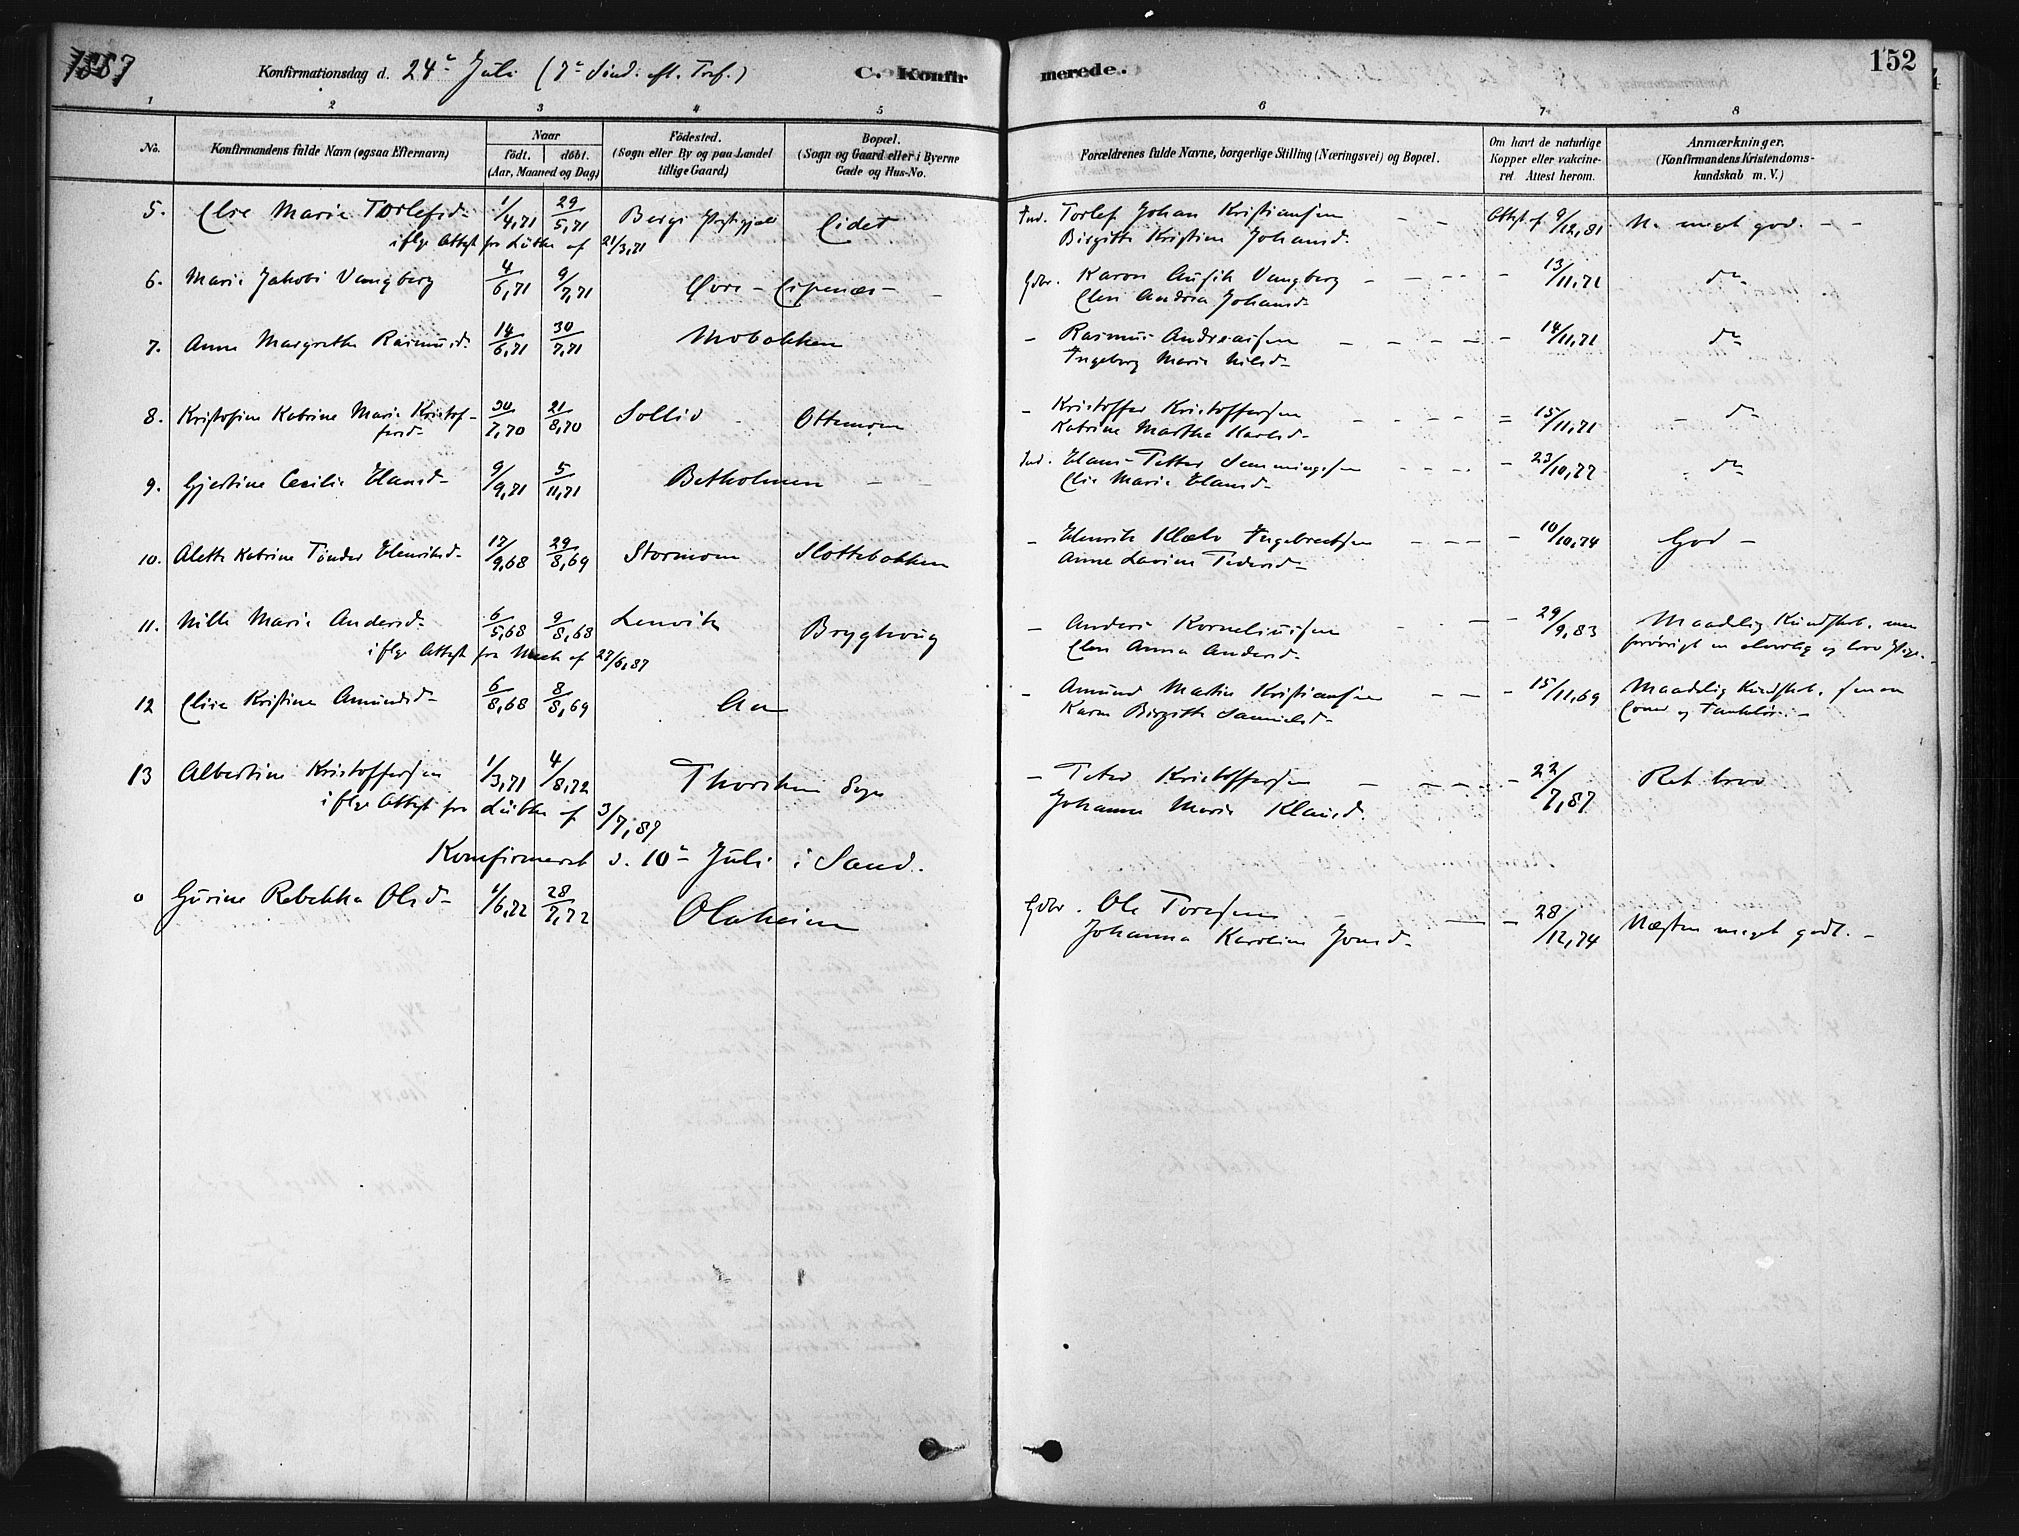 1887 Konfirmationsdag d. 24de Juli (7de Sönd. eft. Tref.) C. Konfirmerede. 152
1 2 3 4 5 6 7 8
No. Konfirmandens fulde Navn (ogsaa Efternavn) Naar födt. döbt. (Aar, Maaned og Dag) Födested. (Sogn eller By og paa Landet tillige Gaard) Bopæl. (Sogn og Gaard eller i Byerne Gade og Hus-No. Forældrenes fulde Navne, borgerlige Stilling (Næringsvei) og Bopæl. Om havt de naturlige Kopper eller vakcineret Attest herom. Anmærkninger. (Konfirmandens Kristendomskundskab m. V.)
5. Else Marie Torlefsd. 1/4,71 29/5,71 Bergs Eidet Ind. Torlef Johan Kristiansen Attest af 9/12,81 N. meget god.
iflg. Attest fra Lübke af 21/3,71 Birgitte Kristine Johansd.
6. Marie Jakobi Vangberg 4/6,71 9/7,71 Øvre - Espenæs Gdbr. Karon Vangberg 13/11,71 do
Elen Andrea Johansd.
7. Anne Margrethe Rasmusd. 14/6,71 30/7,71 Mobakken - Rasmus Andreassen 14/11,71 do
Ingeborg Marie Nilsd.
8. Kristofine Katrine Marie Kristoffersd. 30/7,70 21/8,70 Sollid Ottemoen - Kristoffer Kristoffersen 15/11,71 do
Katrine Martha Karlsd.
9. Gjertine Cecilie Hansd. 9/9,71 5/11,71 Betholmen Ind. Hans Petter Semmingsen 23/10,77 do
Else Marie Hansd.
10. Aletta Katrine Tønder Henriksd. 17/9,68 29/8,69 Stormoen Slottebakken - Henrik Klæbo Ingebretsen 10/10,74 God -
Anne Lavine Pedersd.
11. Nille Marie Andersd. 6/5,68 9/8,68 Lenvik Bryghoug - Anders Korneliussen 29/9,83 Maadelig Kundskab, men
iflg. Attest fra Mack af 27/6,87 Elen Anna Andersd. forøvrigt en alvorlig og bra Pige.
12 Elise Kristine Amundsd. 6/8,68 8/8,69 Aa - Amund Martin Kristiansen 15/11,69 Maadelig Kundskab,
Karen Birgitte Samuelsd.
13 Albertine Kristoffersen 1/3,71 4/8,72 Thorsken Sogn - Peter Kristoffersen 22/7,87 Ret bra
iflg. Attest fra Lübke af 3/7,87 Johanna Marie Klausd.
Konfirmeret d. 10de Juli i Sand.
0 Gurine Rebekka Olsd. 1/6,72 28/7,72 Olaheim Gdbr. Ole Toresen 28/12,74 Næsten meget godt. -
Johanna Karoline Jonsd.